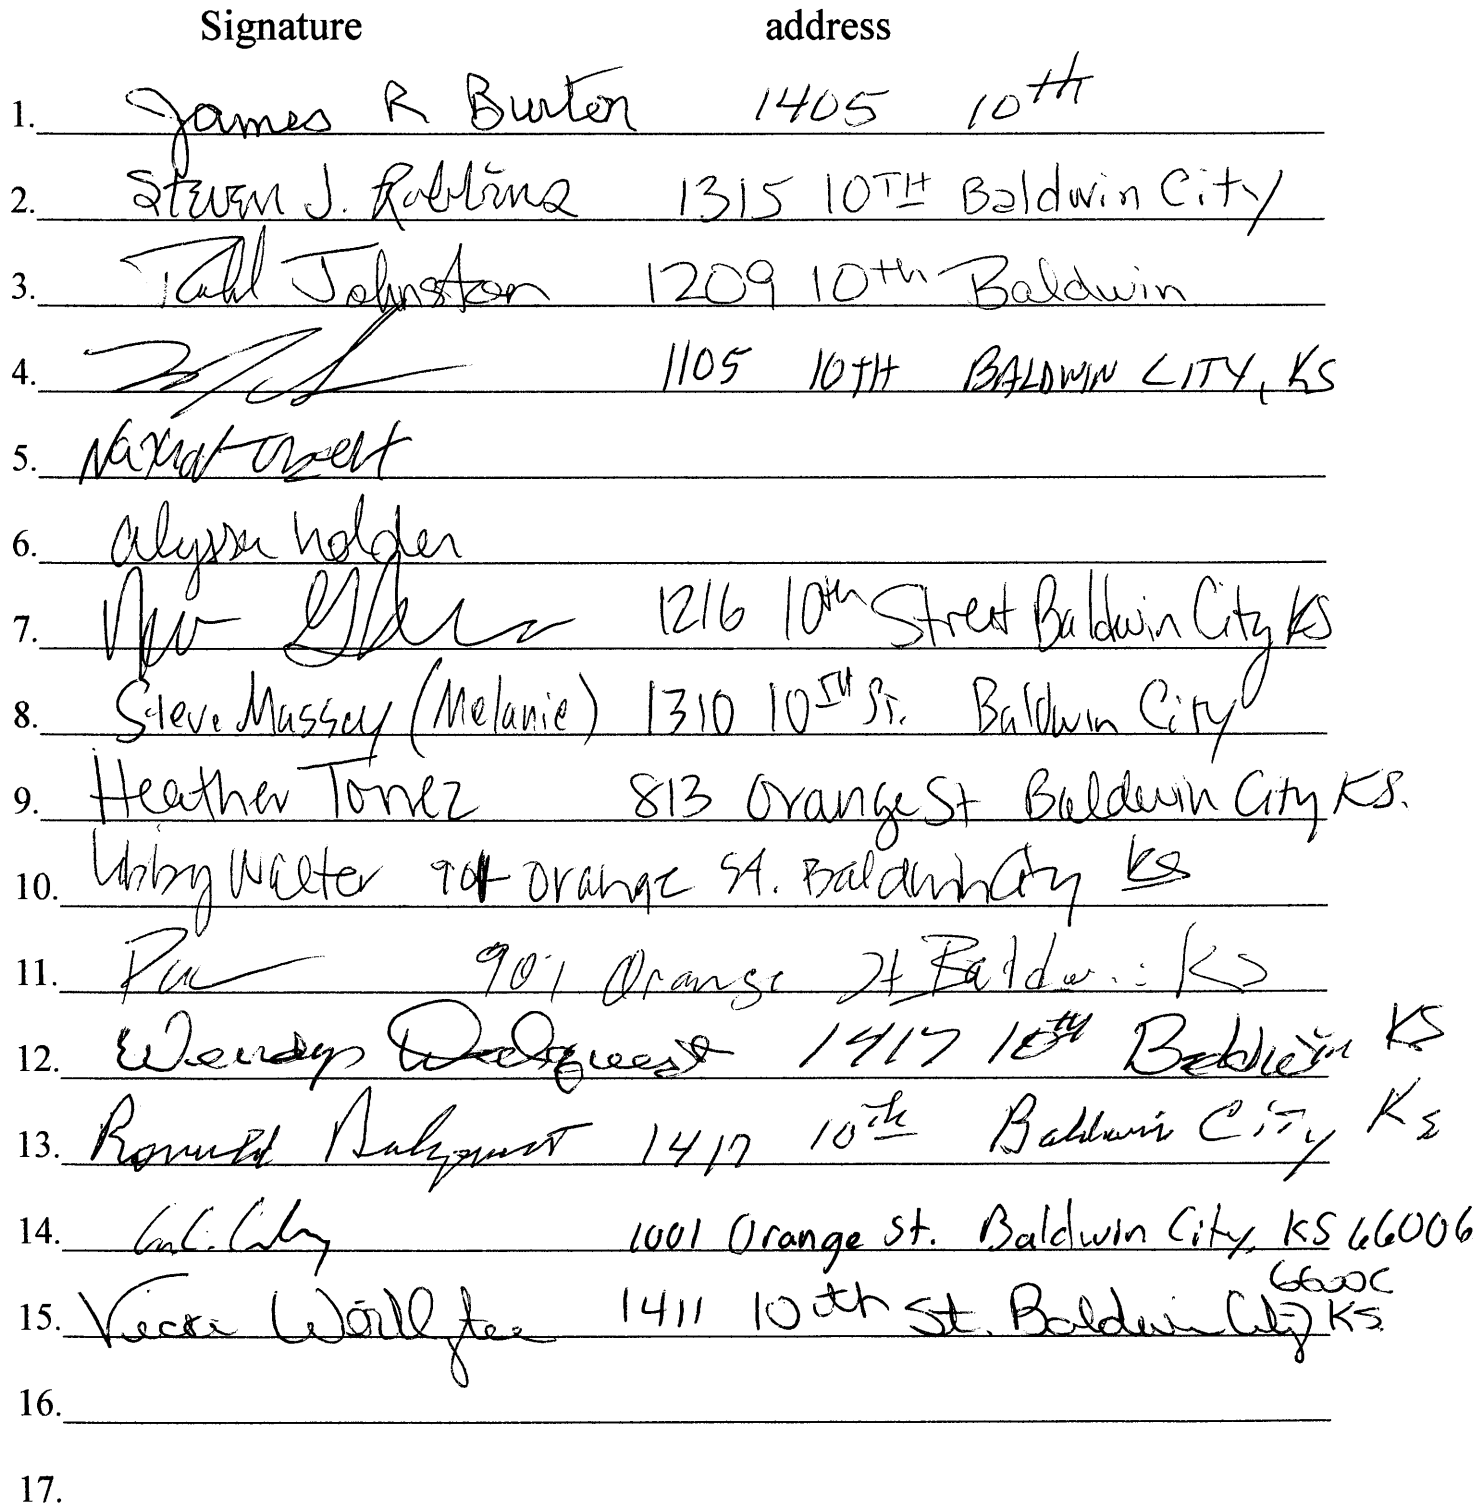 Signature address
1. James R Burton 1405 10th
2. Steven J. Robbins 1315 10TH Baldwin City
3. Johnston 1209 10th Baldwin
4. 1105 10TH BALDWIN CITY, KS
5.
6. alyssa holden
7. 1216 10th Street Baldwin City KS
8. Steve Massey (Melanie) 1310 10TH St. Baldwin City
9. Heather Torrez 813 Orange St Baldwin City KS.
10. Libby Walter Orange St. Baldwin City KS
11. 901 Orange St Baldwin KS
12. Wendy Dalquest 1417 10th Baldwin KS
13. Ronald Dalquest 1417 10th Baldwin City Ks
14. 1001 Orange St. Baldwin City, KS 66006
66006
15. 1411 10th St. Baldwin City KS.
16.
17.